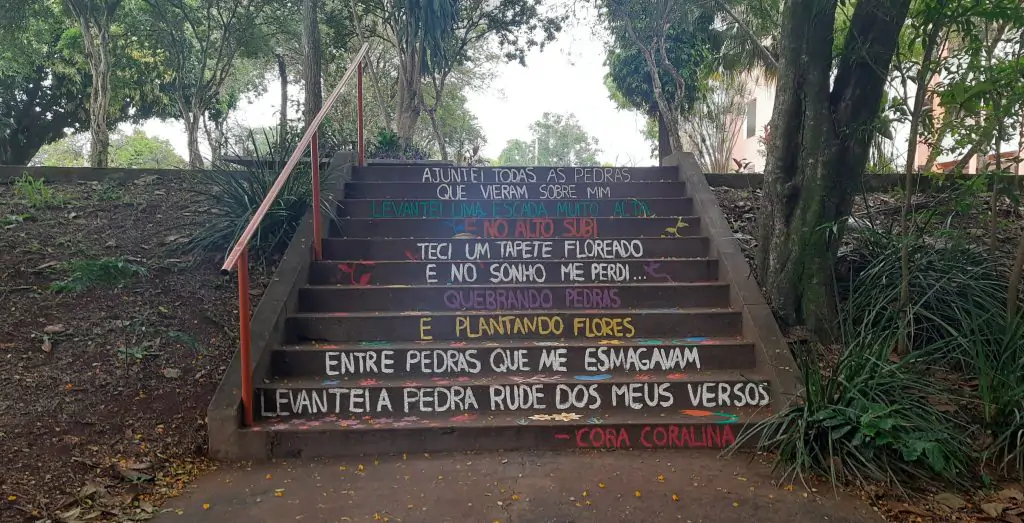 AJUNTEI TODAS AS PEDRAS
QUE VIERAM SOBRE MIM
LEVANTEI UMA ESCADA MUITO ALTA
E NO ALTO SUBI
TECI UM TAPETE FLOREADO
E NO SONHO ME PERDI...
QUEBRANDO PEDRAS
E PLANTANDO FLORES
ENTRE PEDRAS QUE ME ESMAGAVAM
LEVANTEI A PEDRA RUDE DOS MEUS VERSOS
- CORA CORALINA